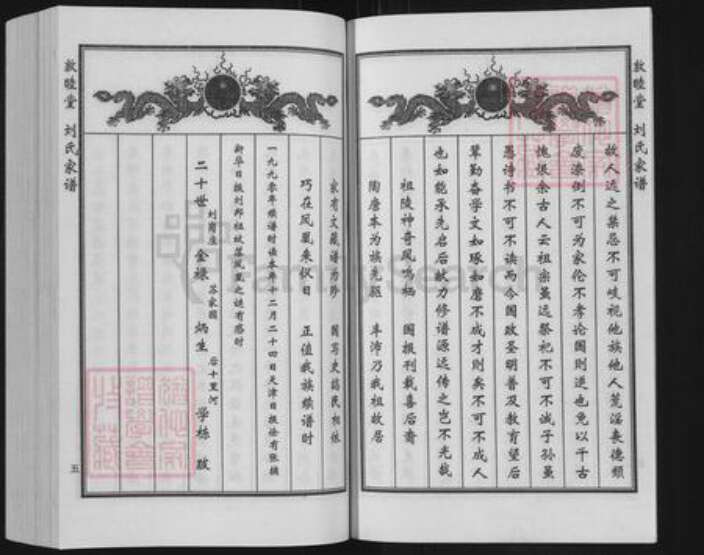 敦睦堂 刘氏家谱
故人远之禁忌不可岐视他族他人荒淫丧德颓
废潦倒不可为家伦不孝论国则逆也免以千古
愧恨余古人云祖宗虽远祭祀不可不诚子孙虽
愚诗书不可不读而今国政圣明普及教育望后
辈勤奋学文如琢如磨不成才则矣不可不成人
也如能承先启后献力修谱源远传之岂不光哉
祖陵神奇凤鸣栖 国报刊载喜后裔
陶唐本为族先驱 丰沛乃我祖故居
家有文藏谱为珍 国写史志民相依
巧在凤凰来仪日 正值我族续谱时
一九九零年续谱时读本年十二月二十四日天津日报徐有张摘
新华日报刘邦祖坟落凤凰之谜有感时
二十世 刘南庄 金禄 苏家园 炳生 后十里河 学栋 跋
敦睦堂 刘氏家谱
五
FamilySearch